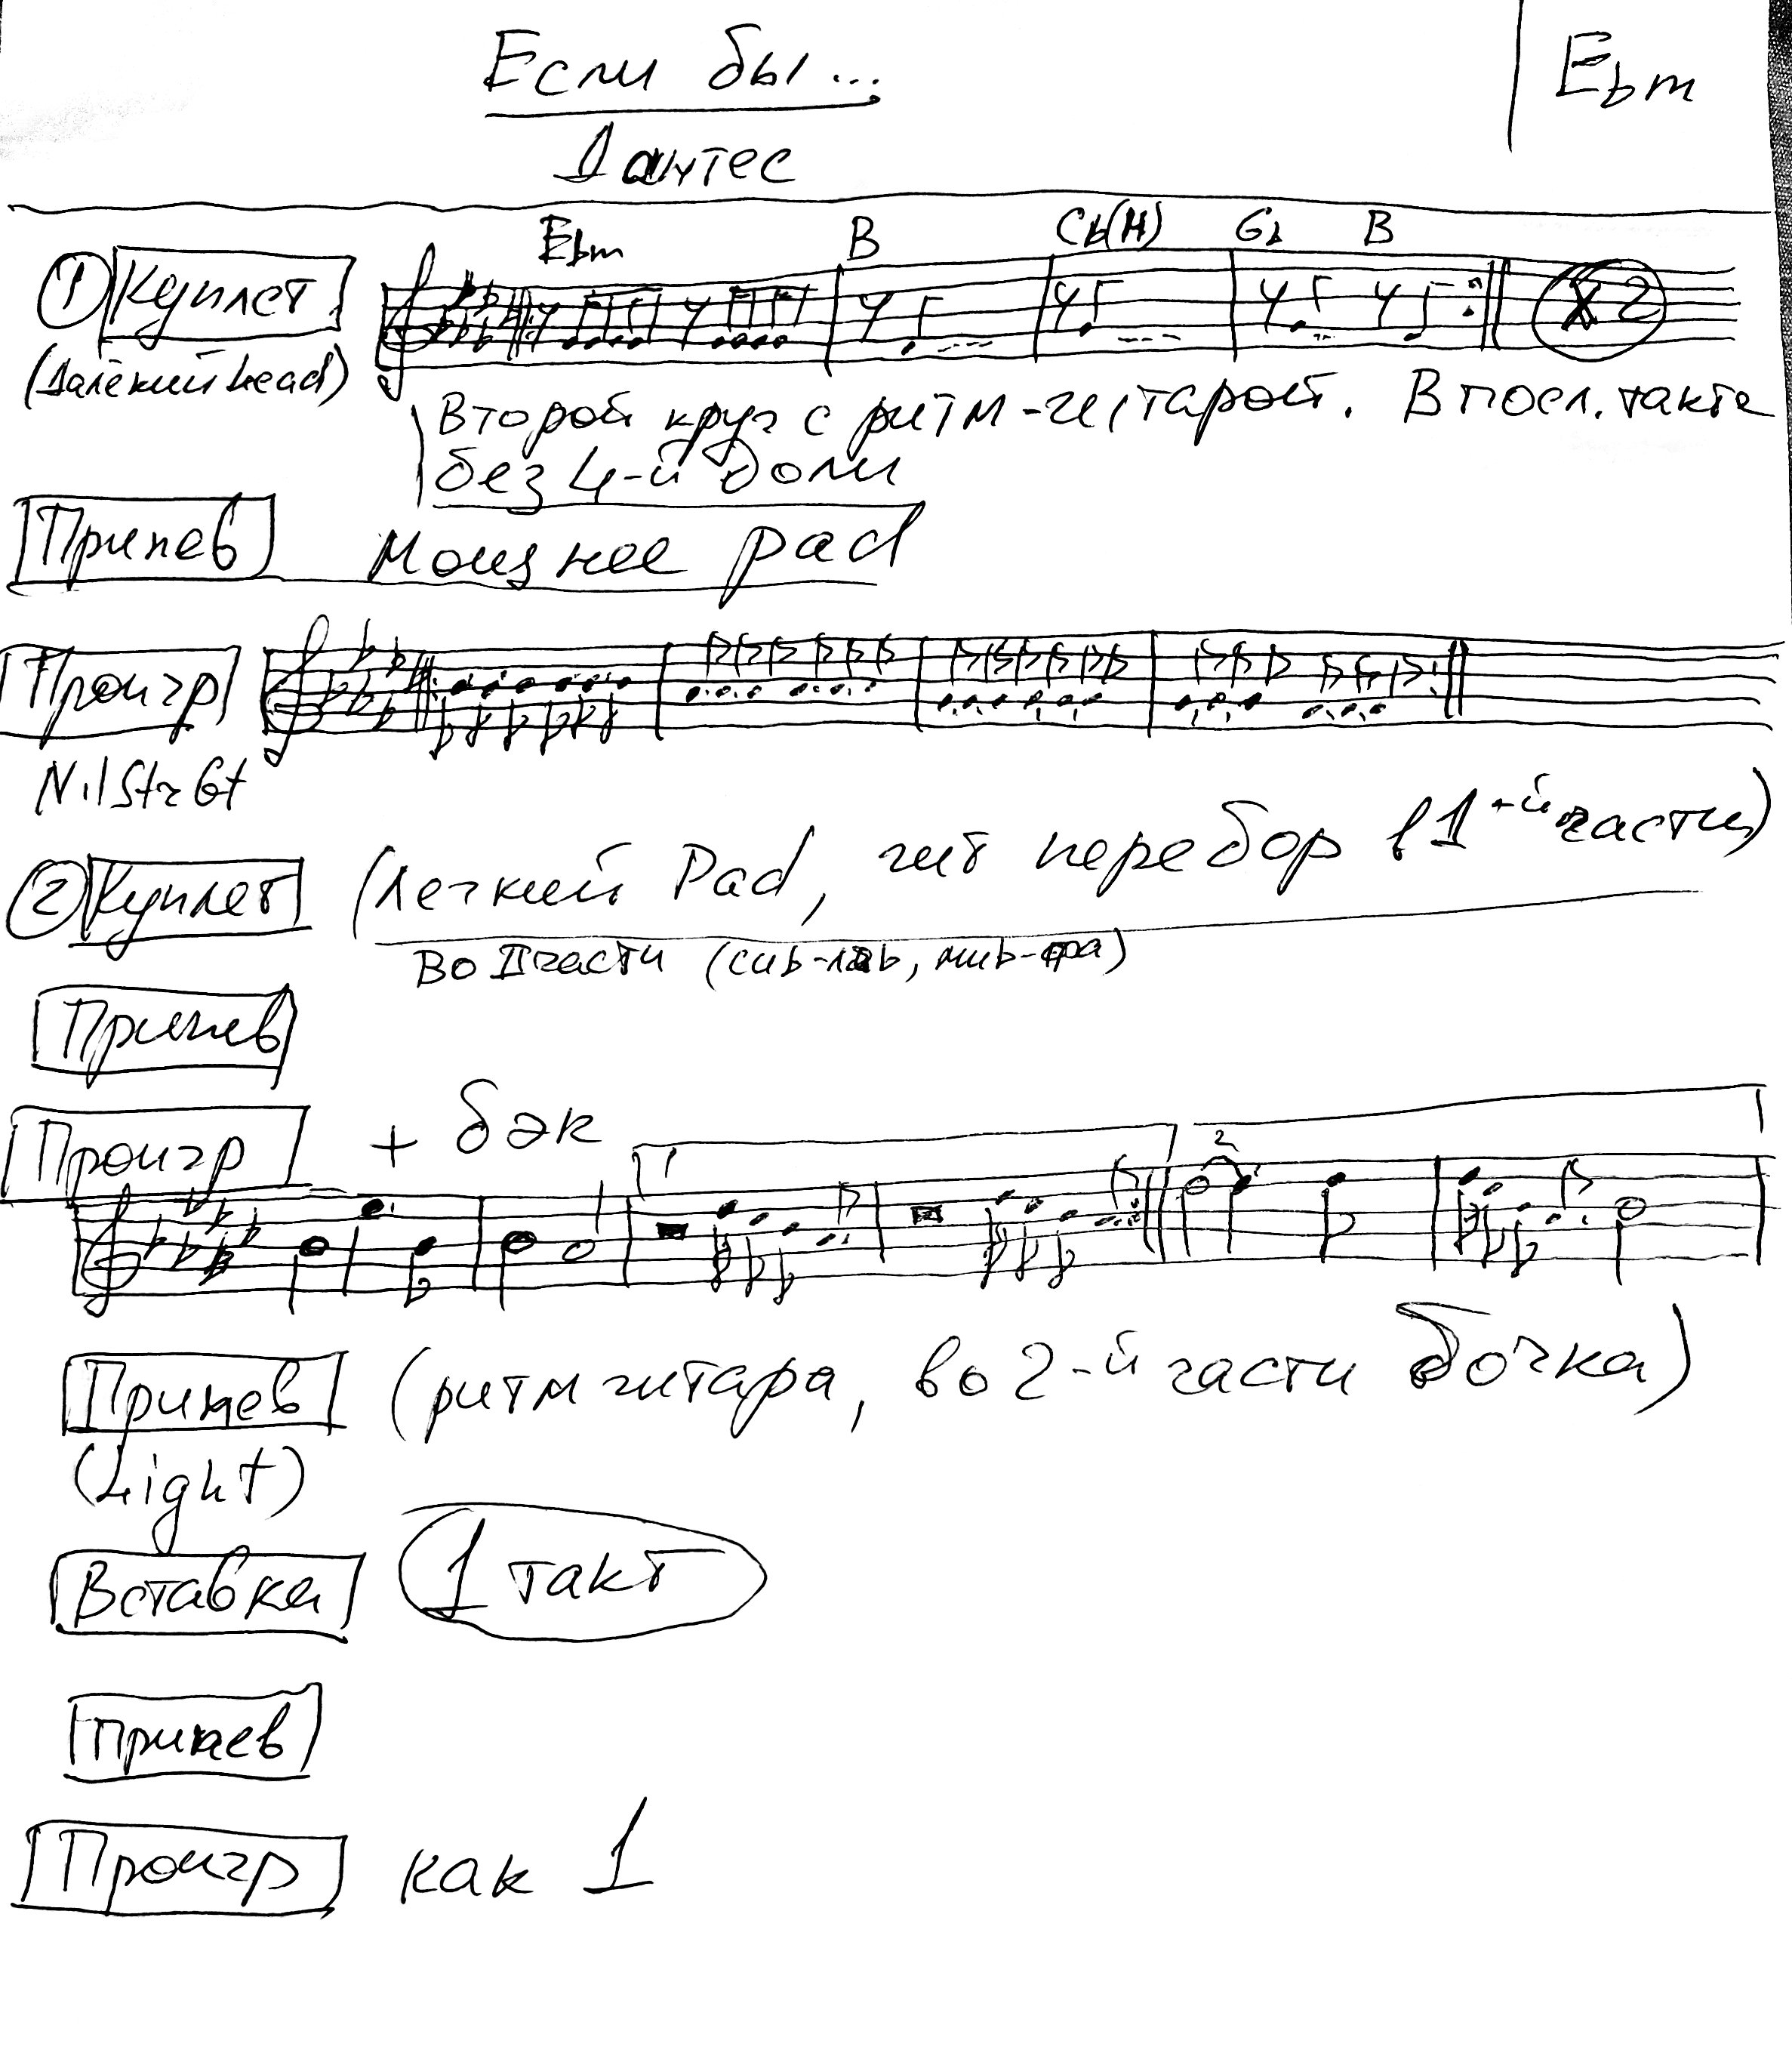 Если бы...
Ebm
Дантес
Ebm B Cb(H) Gb B
① Куплет X2
(Далёкий Lead)
Второй круг с ритм-гитарой. В посл. такте
без 4-й доли
Припев Мощнее pad
Проигр
NylStrGt
② Куплет (Легкий Pad, гит перебор в 1-й части)
Во II части (сиb-ляb, миb-фа)
Припев
Проигр + бэк
1 2
Припев (ритм гитара, во 2-й части бочка)
(Light)
Вставка 1 такт
Припев
Проигр как 1